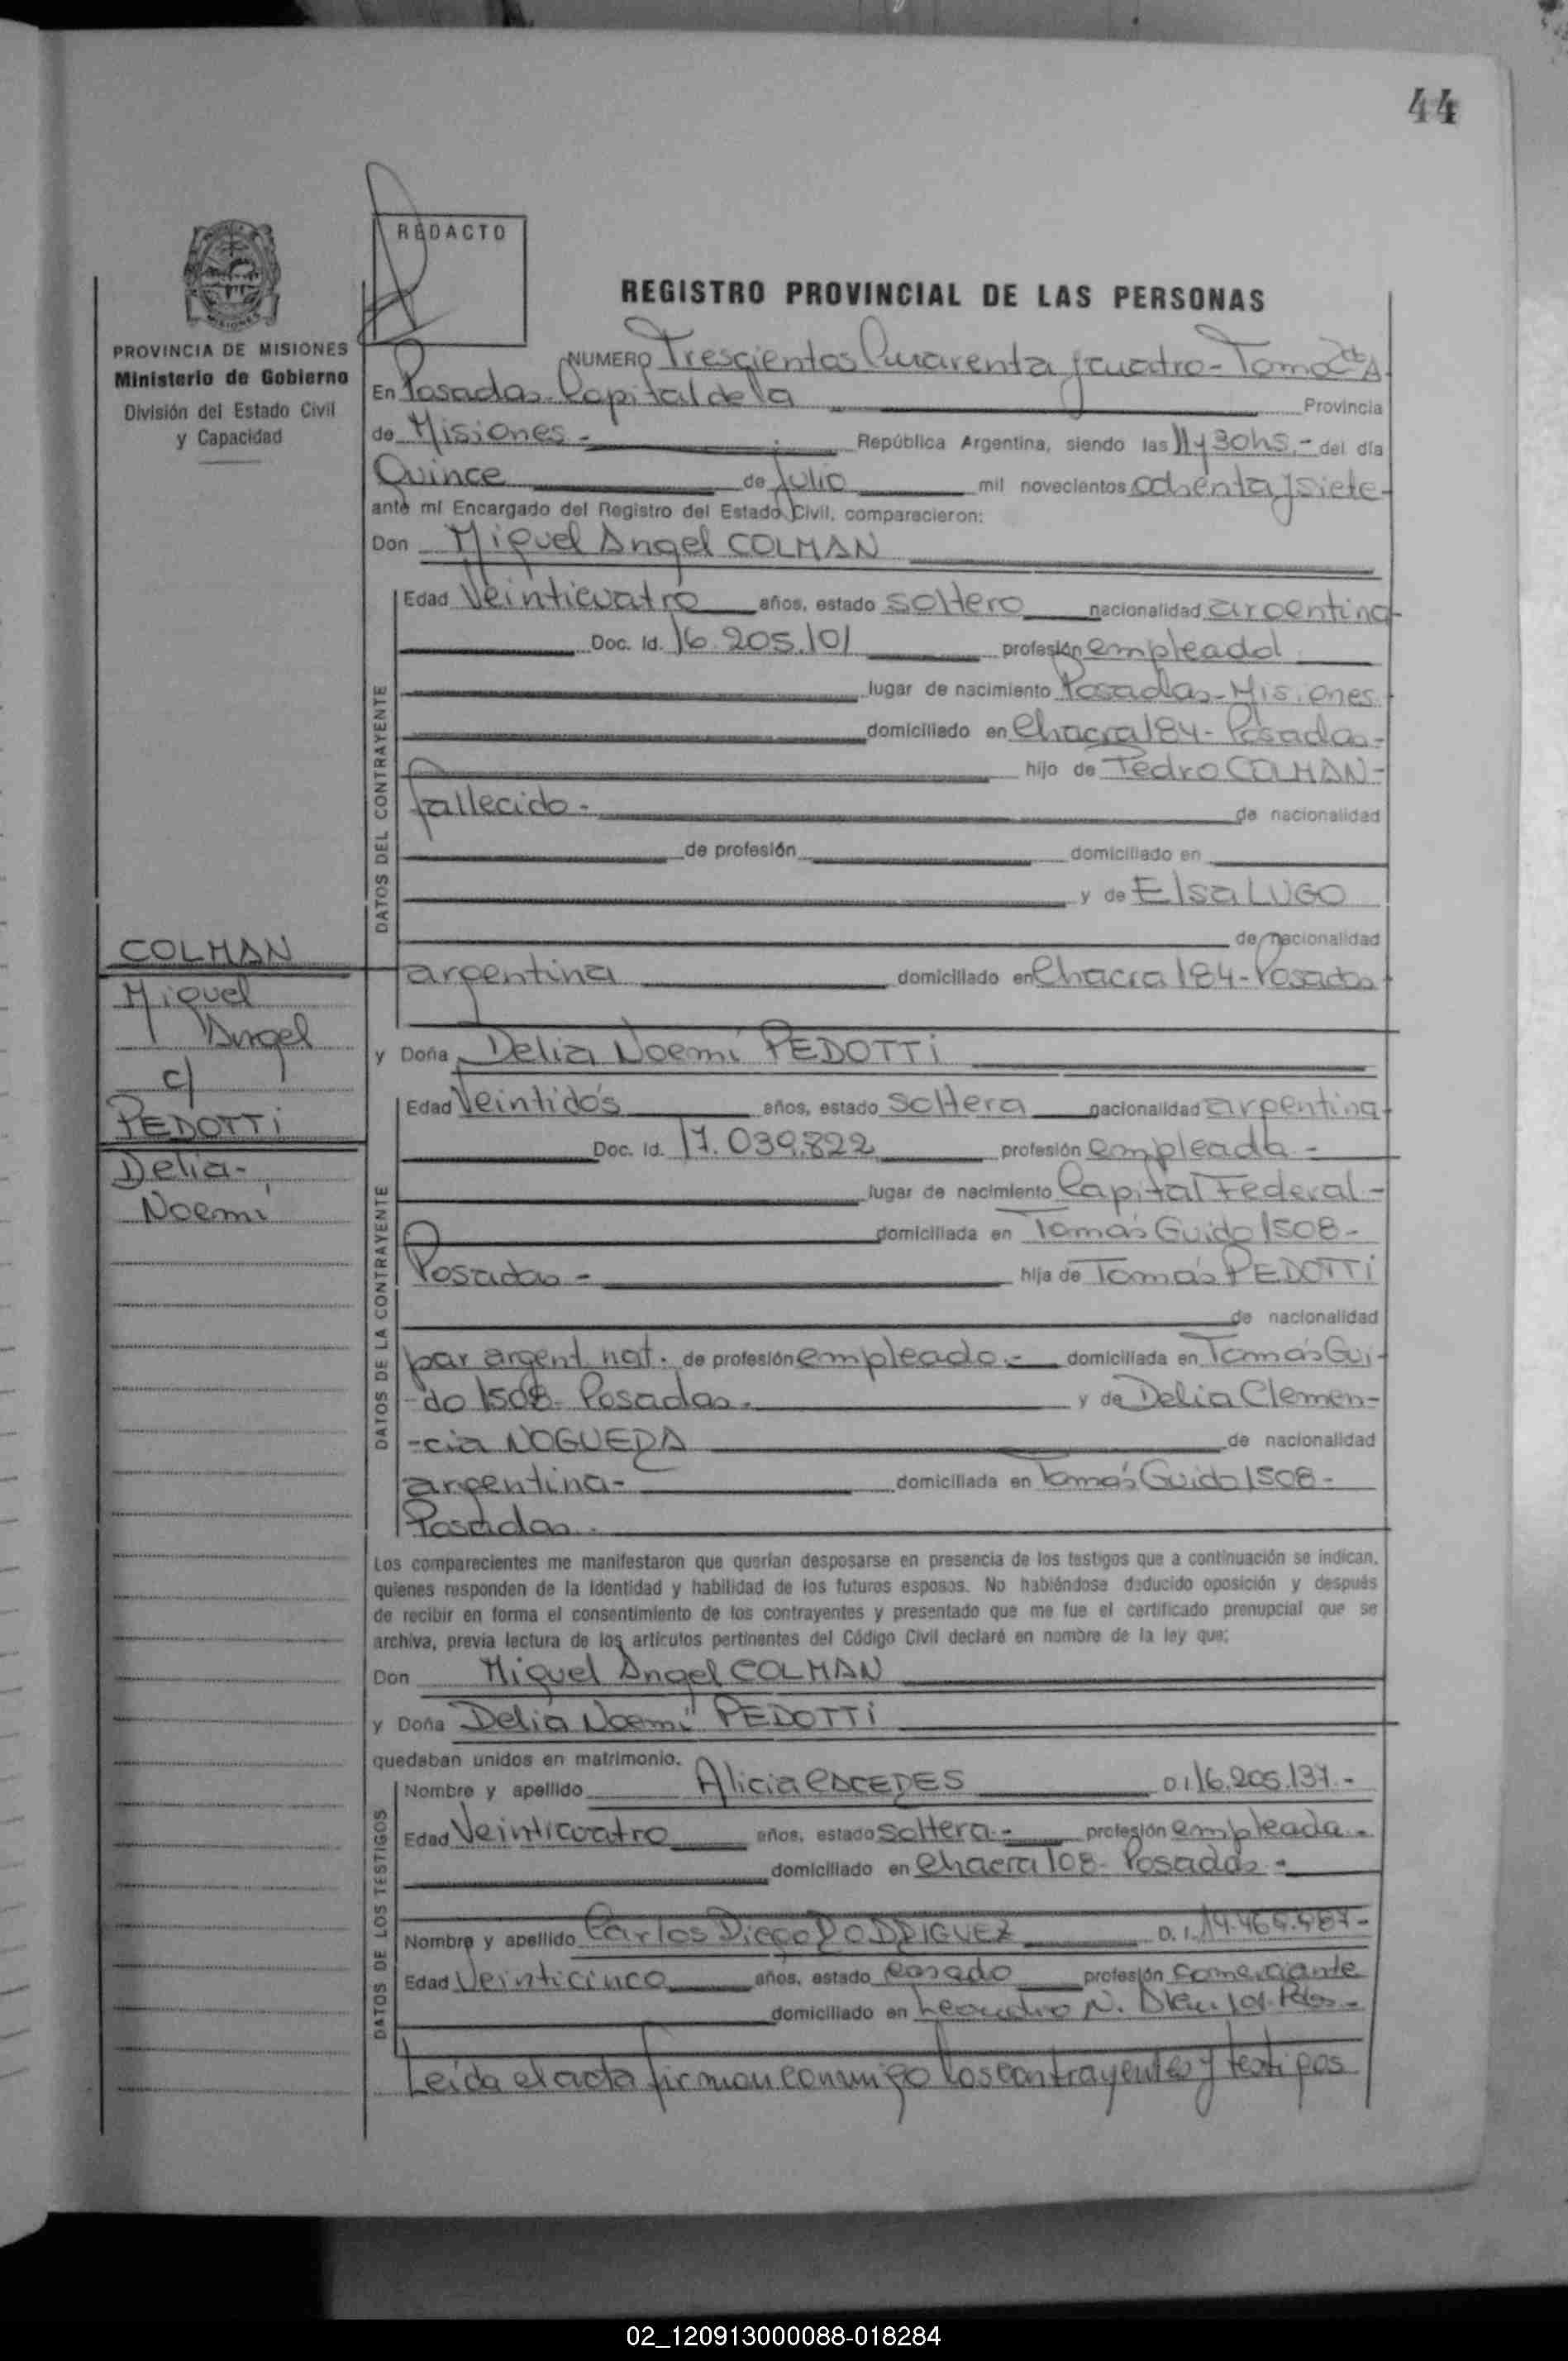 44
REDACTO
REGISTRO PROVINCIAL DE LAS PERSONAS
MISIONES
PROVINCIA DE MISIONES
Ministerio de Gobierno
División del Estado Civil
y Capacidad
NUMERO Trescientos Cuarenta y cuatro - Tomo A
En Posadas Capital de la Provincia
de Misiones - República Argentina, siendo las 11 y 30 hs. - del día
Quince de Julio mil novecientos ochenta y siete -
ante mí Encargado del Registro del Estado Civil, comparecieron:
Don Miguel Angel COLMAN
DATOS DEL CONTRAYENTE
Edad Veinticuatro años, estado soltero nacionalidad argentina
Doc. Id. 16.205.101 profesión empleado
lugar de nacimiento Posadas - Misiones
domiciliado en Chacra 184 - Posadas -
hijo de Pedro COLMAN -
fallecido - de nacionalidad
de profesión domiciliado en
y de Elsa LUGO
de nacionalidad
argentina domiciliado en Chacra 184 - Posadas
COLMAN
Miguel
Angel
c/
PEDOTTi
Delia -
Noemí
y Doña Delia Noemí PEDOTTi
DATOS DE LA CONTRAYENTE
Edad Veintidós años, estado soltera nacionalidad argentina
Doc. Id. 17.039.822 profesión empleada -
lugar de nacimiento Capital Federal -
domiciliada en Tomás Guido 1508 -
Posadas - hija de Tomás PEDOTTi
de nacionalidad
par argent nat. de profesión empleado - domiciliada en Tomás Gui-
-do 1508 - Posadas - y de Delia Clemen-
-cia NOGUERA de nacionalidad
argentina - domiciliada en Tomás Guido 1508 -
Posadas.
Los comparecientes me manifestaron que querían desposarse en presencia de los testigos que a continuación se indican,
quienes responden de la identidad y habilidad de los futuros esposos. No habiéndose deducido oposición y después
de recibir en forma el consentimiento de los contrayentes y presentado que me fue el certificado prenupcial que se
archiva, previa lectura de los artículos pertinentes del Código Civil declaré en nombre de la ley que:
Don Miguel Angel COLMAN
y Doña Delia Noemí PEDOTTi
quedaban unidos en matrimonio.
DATOS DE LOS TESTIGOS
Nombre y apellido Alicia CACERES D.I. 16.205.137 -
Edad Veinticuatro años, estado soltera - profesión empleada -
domiciliado en Chacra 108 - Posadas -
Nombre y apellido Carlos Diego RODRIGUEZ D.I.
Edad Veinticinco años, estado casado profesión comerciante
domiciliado en Leandro N.
Leída el acta firman conmigo los contrayentes y testigos
02_120913000088-018284